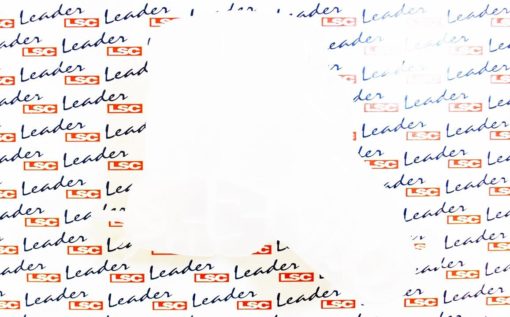 Leader LSC Leader LSC Leader LSC Leader
LSC Leader LSC Leader LSC
Leader LSC Leader LSC Leader LSC
LSC Leader LSC Leader LSC Leader
Leader LSC Leader LSC Leader LSC
LSC Leader LSC Leader LSC Leader
Leader LSC Leader LSC Leader LSC
LSC Leader LSC Leader LSC Leader
Leader LSC Leader LSC Leader
LSC Leader LSC LSC Leader
Leader LSC Leader LSC Leader
LSC Leader LSC Leader
Leader LSC LSC Leader
LSC Leader LSC LSC
Leader LSC Leader LSC Leader LSC Leader
LSC Leader LSC Leader LSC Leader LSC
Leader LSC Leader LSC Leader LSC Leader